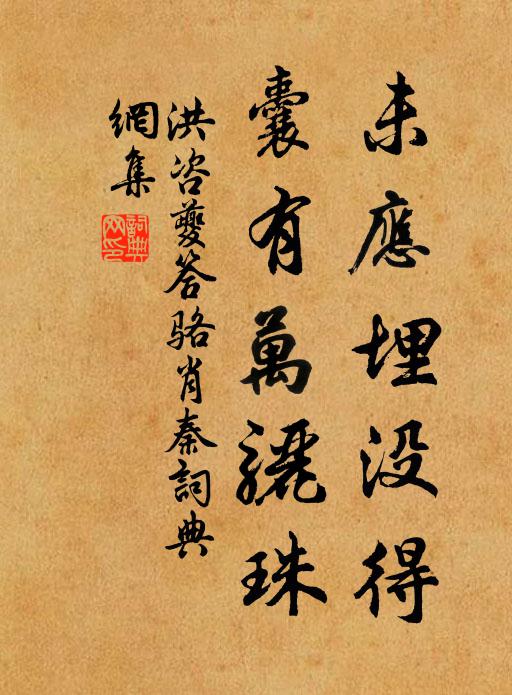 未應埋没得
囊有萬驪珠
洪咨夔答駱肖秦詞典
網集
詞典
网印